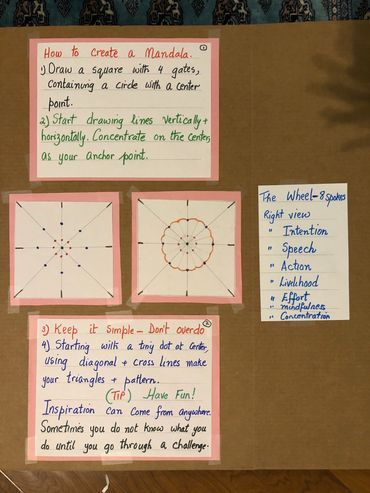 How to Create a Mandala.
1
1) Draw a square with 4 gates,
containing a circle with a center
point.
2) Start drawing lines vertically +
horizontally. Concentrate on the center,
as your anchor point.
The Wheel - 8 spokes
Right view
" Intention
" Speech
" Action
" Livlihood
" Effort
" mindfulness
" Concentration
2
3) Keep it simple - Don't overdo
4) Starting with a tiny dot at center,
using diagonal + cross lines make
your triangles + pattern.
(TIP) Have Fun!
Inspiration can come from anywhere.
Sometimes you do not know what you
do until you go through a challenge.